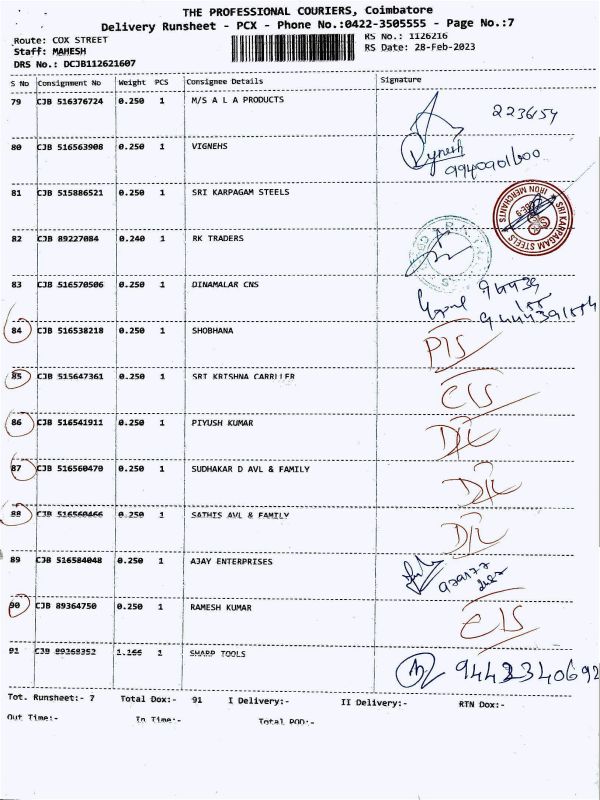 THE PROFESSIONAL COURIERS, Coimbatore
Delivery Runsheet - PCX - Phone No.:0422-3505555 - Page No.:7
Route: COX STREET RS No.: 1126216
Staff: MAHESH RS Date: 28-Feb-2023
DRS No.: DCJB112621607
S No Consignment No Weight PCS Consignee Details Signature
79 CJB 516376724 0.250 1 M/S A L A PRODUCTS 2236154
80 CJB 516563908 0.250 1 VIGNEHS
81 CJB 515886521 0.250 1 SRI KARPAGAM STEELS SRI KARPAGAM STEELS IRON MERCHANTS
82 CJB 89227084 0.240 1 RK TRADERS
83 CJB 516570506 0.250 1 DINAMALAR CNS
84 CJB 516538218 0.250 1 SHOBHANA
85 CJB 515647361 0.250 1 SRI KRISHNA CARRIER
86 CJB 516541911 0.250 1 PIYUSH KUMAR D/L
87 CJB 516560470 0.250 1 SUDHAKAR D AVL & FAMILY D/L
88 CJB 516560466 0.250 1 SATHIS AVL & FAMILY D/L
89 CJB 516584048 0.250 1 AJAY ENTERPRISES
90 CJB 89364750 0.250 1 RAMESH KUMAR
91 CJB 89368352 1.166 1 SHARP TOOLS 9442340692
Tot. Runsheet:- 7 Total Dox:- 91 I Delivery:- II Delivery:- RTN Dox:-
Out Time:- In Time:- Total POD:-